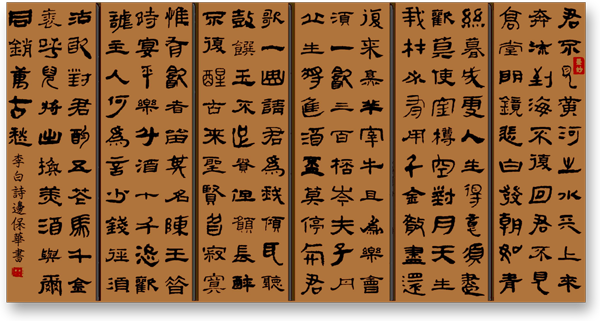 君不見黃河之水天上來
奔流到海不復回君不見
高堂明鏡悲白發朝如青
絲暮成雪人生得意須盡
歡莫使金樽空對月天生
我材必有用千金散盡還
復來烹羊宰牛且為樂會
須一飲三百杯岑夫子丹
丘生將進酒杯莫停與君
歌一曲請君為我傾耳聽
鼓饌玉不足貴但願長醉
不復醒古來聖賢皆寂寞
惟有飲者留其名陳王昔
時宴平樂斗酒十千恣歡
謔主人何為言少錢徑須
沽取對君酌五花馬千金
裘呼兒將出換美酒與爾
同銷萬古愁
李白詩邊保華書